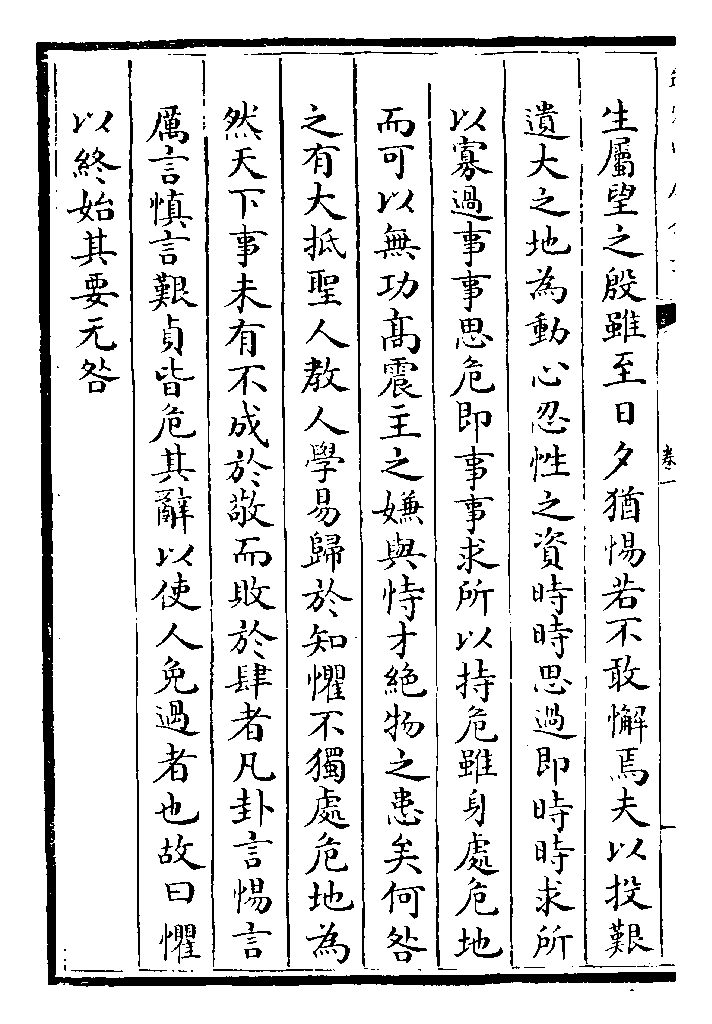 生屬望之殷雖至日夕猶惕若不敢懈焉夫以投艱
遺大之地為動心忍性之資時時思過即時時求所
以寡過事事思危即事事求所以持危雖身處危地
而可以無功髙震主之嫌與恃才絶物之患矣何咎
之有大抵聖人教人學易歸於知懼不獨處危地為
然天下事未有不成於敬而敗於肆者凡卦言惕言
厲言慎言艱貞皆危其辭以使人免過者也故曰懼
以終始其要无咎
卷一